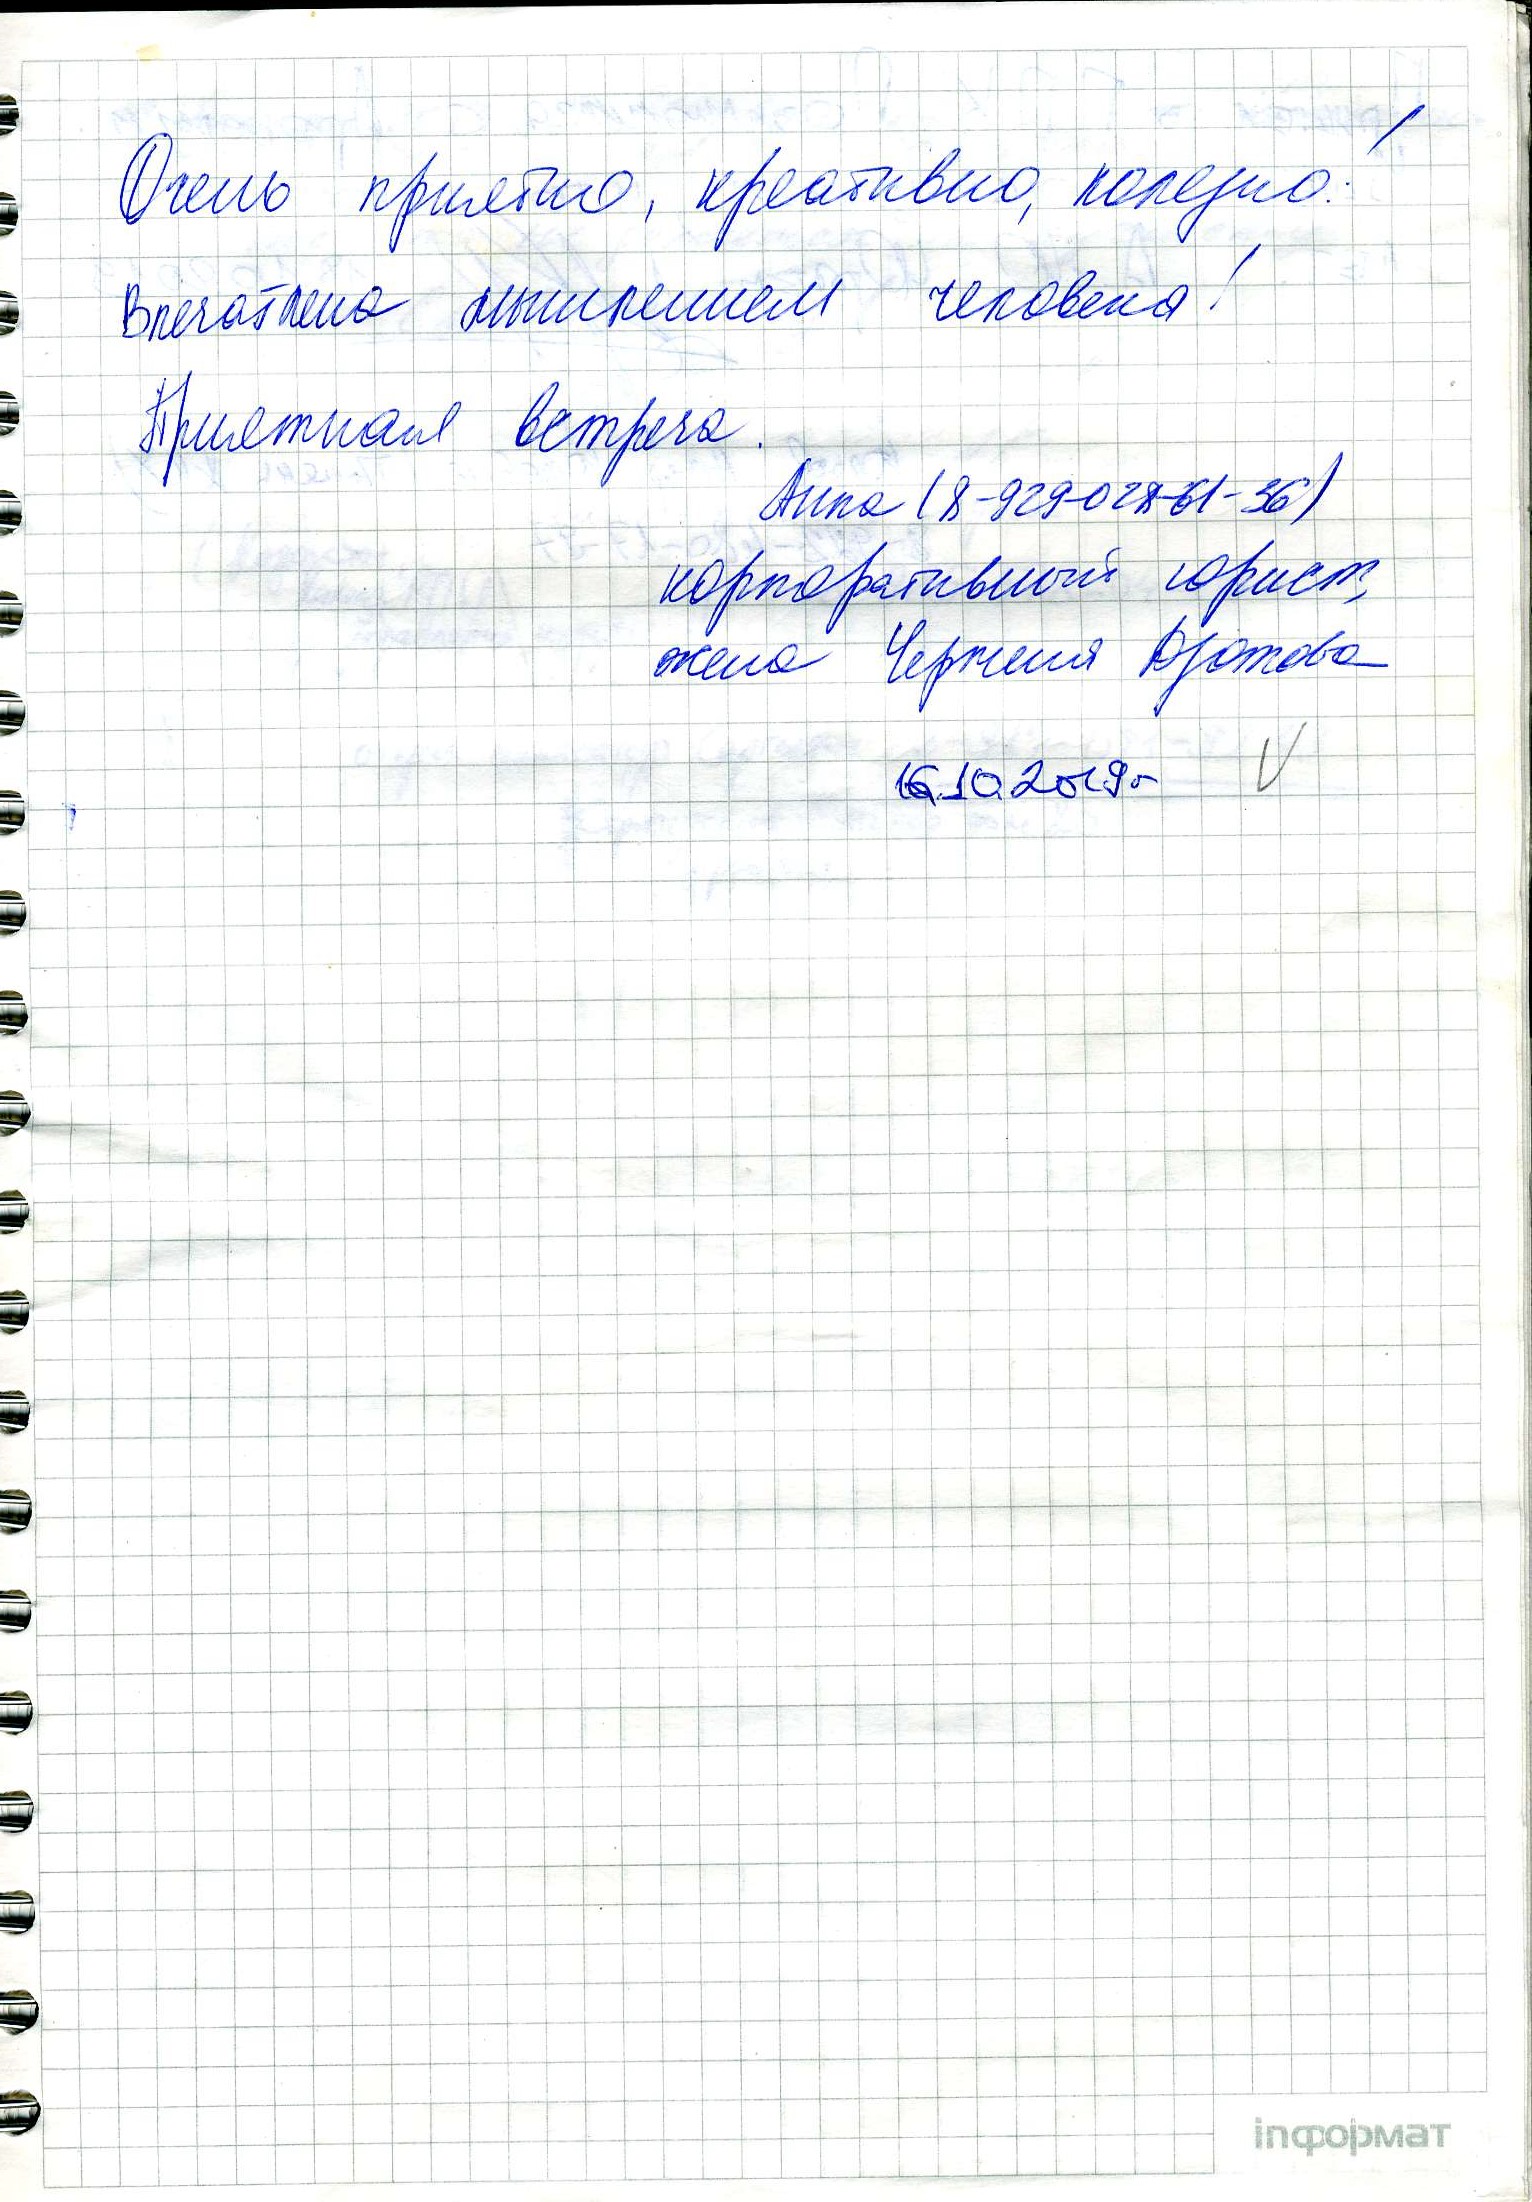 Очень приятно, креативно, полезно!
Впечатлена мышлением человека!
Приятная встреча.
Анна (8-929-028-61-36)
корпоративный юрист,
жена Черненя
16.10.2019г
inформат